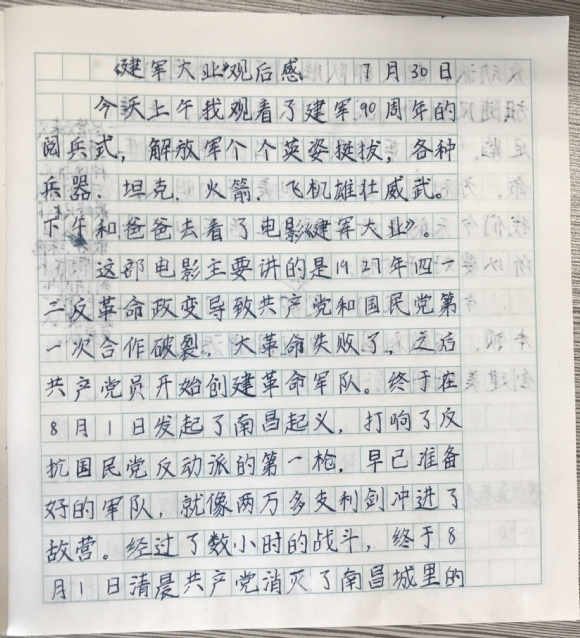 《建军大业》观后感 7月30日
今天上午我观看了建军90周年的
阅兵式，解放军个个英姿挺拔，各种
兵器．坦克．火箭．飞机雄壮威武。
下午和爸爸去看了电影《建军大业》。
这部电影主要讲的是1927年四一
二反革命政变导致共产党和国民党第
一次合作破裂，大革命失败了，之后
共产党员开始创建革命军队。终于在
8月1日发起了南昌起义，打响了反
抗国民党反动派的第一枪，早已准备
好的军队，就像两万多支利剑冲进了
敌营。经过了数小时的战斗，终于8
月1日清晨共产党消灭了南昌城里的